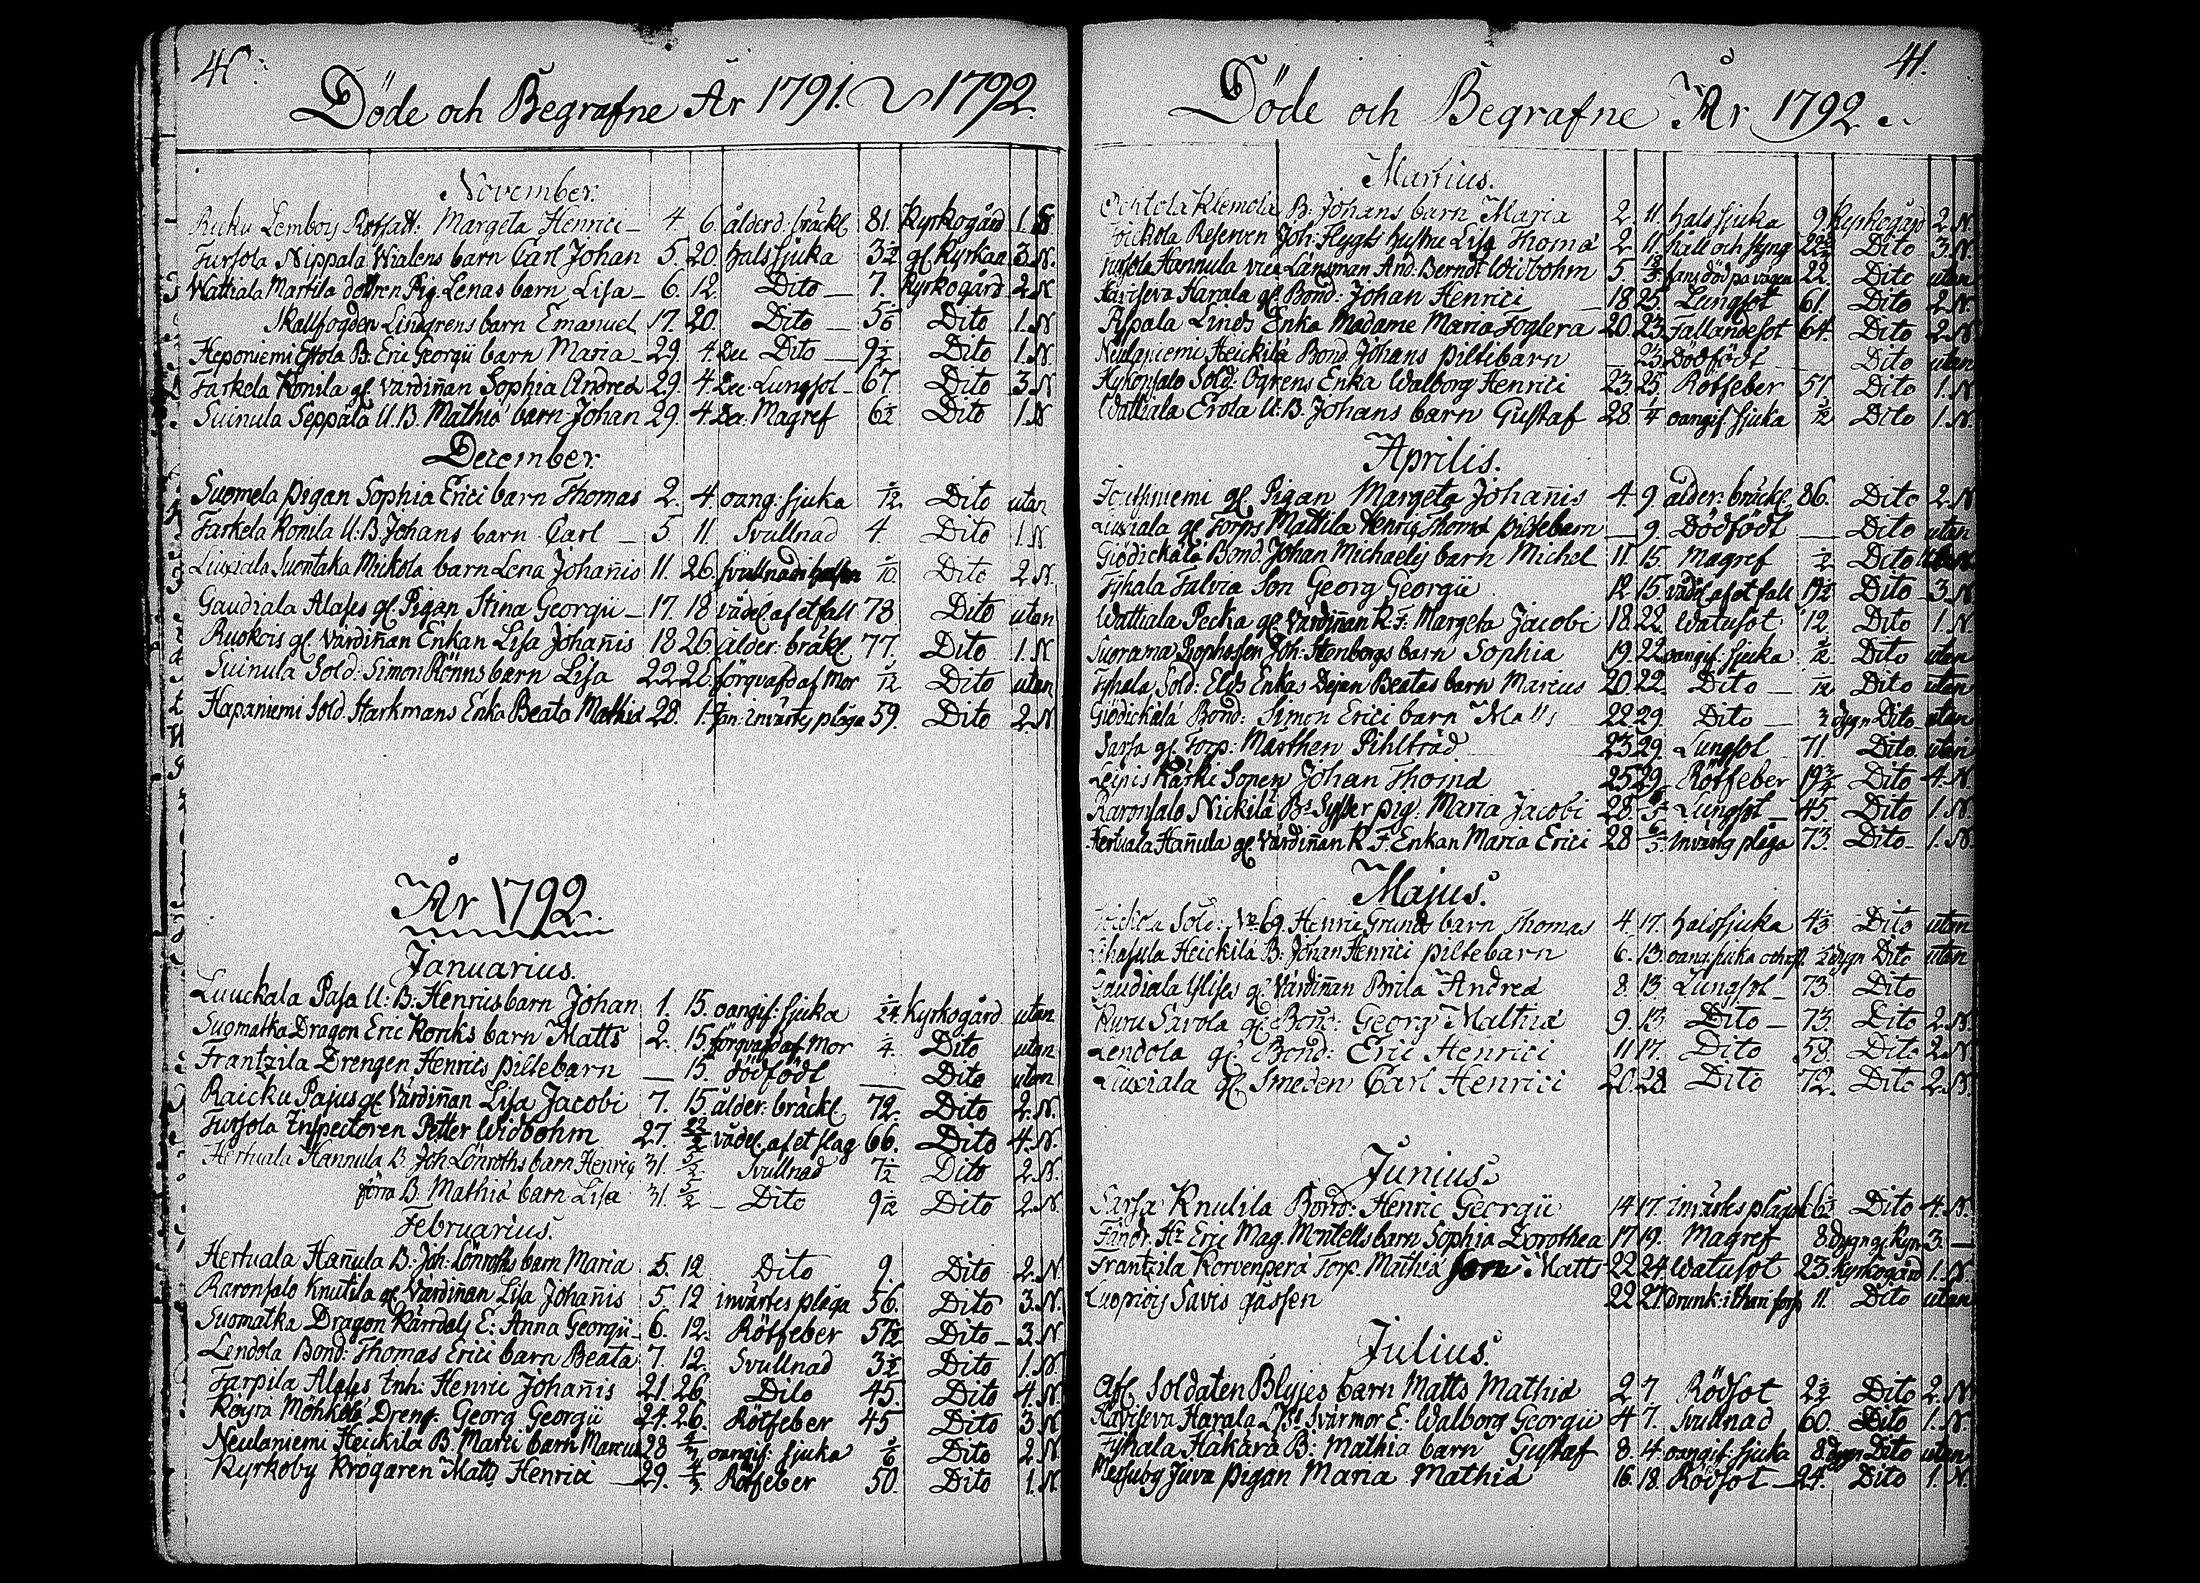 40.
Döde och Begrafne År 1791. 1792.
November.
Ruku Lembois Rotfatt: Margeta Henrici 4. 6. ålderd: bräckl 81. Kyrkogård 1. N.
Tursola Nippala Wialens barn Carl Johan 5. 20. halssjuka 3 1/2 gl Kyrkan 3. N.
Wattiala Martila dottren Pig. Lenas barn Lisa 6. 12. Dito 7. Kyrkogård 2. N
Skallfogden Lindgrens barn Emanuel 17. 20. Dito 5/6 Dito 1. N
Heponiemi Eskola B: Eric Georgii barn Maria 29. 4. Dec Dito 9 1/2 Dito 1. N
Tarkela Romila gl. Värdiñan Sophia Andreæ 29. 4 Dec. Lungsot 67. Dito 3. N
Suinula Seppälä U. B. Mathiæ barn Johan 29. 4. Dec. Magref 6 1/2 Dito 1. N
December.
Suomela pigan Sophia Erici barn Thomas 2. 4. oang: sjuka /12 Dito utan
Tarkela Romila U. B. Johans barn Carl 5. 11. Svullnad 4 Dito 1. N.
Liuxiala Suentaka Mickola barn Lena Johañis 11. 26. svullnad i halsen /10 Dito 2. N.
Gaudiala Alases gl. Pigan Stina Georgii 17. 18 vådel. af et fall 78 Dito utan
Ruokois gl. Värdiñan Enkan Lisa Johañis 18 26. ålder: bräkl 77. Dito 1. N
Suinula Sold: Simon Rönns barn Lisa 22 26. förqvafd af Mor /12 Dito utan
Hapaniemi Sold. Starkmans Enka Beata Mathiæ 28. 1. Jan: invärtes plåga 59. Dito 2. N
År 1792.
Januarius.
Luuckala Pasa U: B: Henrics barn Johan 1. 15. oangif: sjuka /24 Kyrkogård utan
Suomatka Dragon Eric Koriks barn Matts 2. 15. förqvafd af Mor /4. Dito utan
Frantzila Drengen Henrics piltebarn 15. dödfödt Dito utan
Raicku Pajus gl. Värdiñan Lisa Jacobi 7. 15. ålder: bräckl. 72. Dito 2. N.
Tursola Inspectoren Petter Widbohm 27. 22/2 vådel. af et slag 66. Dito 4. N.
Hertuala Hannula B. Joh: Lönroths barn Henric 31. 5/2. Svullnad 7 1/2 Dito 2. N.
förra B. Mathiæ barn Lisa 31. 5/2 Dito 9/12 Dito 2. N
Februarius.
Hertuala Hañula B: Joh: Lönroths barn Maria 5. 12 Dito 9. Dito 2. N.
Raronsalo Knutila gl. Värdiñan Lisa Johañis 5. 12 invärtes plåga 56. Dito 3. N.
Suomatka Dragon Rärrdels E: Anna Georgii 6. 12. Rötfeber 57 1/2 Dito 3. N.
Lendola Bond: Thomas Erici barn Beata 7. 12. Svullnad 3 1/2 Dito 1. N.
Tarpila Alases Inh: Henric Johañis 21. 26. Dito 45. Dito 4. N
Köyrä Mohkos Dreng. Georg Georgii 24. 26. Rötfeber 45 Dito 3 N
Neulaniemi Heickilä B. Marci barn Marcus 28 4/3 oangif: sjuka 5/6 Dito 2. N
Kyrkoby Krögaren Matts Henrici 29. 4/3. Rötfeber 50. Dito 1. N.
41.
Döde och Begrafne År 1792.
Martius.
Ochtola Klemola B: Johans barn Maria 2. 11. halssjuka 9. Kyrkogård 2. N.
Reserven Joh: Flygts hustru Lisa Thomæ 2. 11. håll och styng 22 Dito 3. N.
Tursola Hannula vice Länsman And: Berndt Widbohm 5. fans död på vägen 22. Dito utan
Haviseva Harala gl. Bond: Johan Henrici 18 25. Lungsot 61. Dito 2. N
Pypala Linds Enka Madame Maria Foglera 20. 23. Fallandesot 64. Dito 2. N
Neulaniemi Heickilä Bond. Johans piltebarn 25 Dödfödt Dito utan
Hykonsalo Sold: Ögrens Enka Walborg Henrici 23. 25 Rötfeber 57 Dito 1. N
Wattiala Erola U: B: Johans barn Gustaf 28. 1/4 oangif. sjuka /12 Dito 1. N.
Aprilis.
gl. Pigan Margeta Johañis 4. 9. ålder: bräckl. 86. Dito 2. N
Liuxiala gl Torps Mattila Henric Thomæ piltebarn 9. Dödfödt Dito utan
Giödickälä Bond. Johan Michaelis barn Michel 11. 15. Magref 1/2 Dito utan
Tyhala Talvia Son Georg Georgii 12 15. vådel. af et fall 19 1/2 Dito 3. N
Wattiala Pecka gl. Värdiñan K. F: Margeta Jacobi 18. 22 Watusot 12. Dito 1. N.
Suorama Joh: Stenborgs barn Sophia 19. 22 oangif: sjuka /12 Dito utan
Tyhala Sold: Elds Enkas Dejan Beatas barn Marcus 20. 22. Dito /12 Dito utan
Giödickälä Bond: Simon Erici barn Matts 22 29. Dito 3. dygn Dito utan
Sarsa gl. Torp: Mårthen Pihlträd 23. 29. Lungsot 71 Dito utan
Leinis Kärki Sonen Johan Thomæ 25 29. Rötfeber 19 3/4 Dito 4. N.
Raronsalo Nickilä Bs Syster pig: Maria Jacobi 28. 6/5. Lungsot 45. Dito 1. N.
Hertuala Hañula gl. Värdiñan K. F. Enkan Maria Erici 28 6/5. invärtg plåga 73. Dito 1. N.
Majus.
Sold: No 69. Henric Grunds barn Thomas 4. 17. halssjuka 4 1/2 Dito utan
Heickilä B: Johan Henrici piltebarn 6. 13. oang: sjuka dygn Dito utan
Gaudiala Ylises gl Värdiñan Brita Andreæ 8. 13. Lungsot 73. Dito
Kuru Savola gl Bond: Georg Mathiæ 9. 13. Dito 73 Dito 2. N.
Lendola gl. Bond: Eric Henrici 11 17. Dito 58. Dito 2. N.
Liuxiala gl. Smeden Carl Henrici 20. 28. Dito 72. Dito 2. N.
Junius.
Sarsa Knutila Bond: Henric Georgii 14 17. invärtes plåga 61 1/2 Dito 4. N.
Hr Eric Mag. Montells barn Sophia Dorothea 17 19. Magref 8. dygn gl. Kyrk 3.
Frantzila Korvenperä Torp. Mathiæ Son Matts 22 24. Watusot 23. Kyrkogård 1. N
Luopiois Savis gåssen 22 27. drunk: i thari fors 11. Dito utan
Julius.
Afl. Soldaten Blyges barn Matts Mathiæ 2 7 Rödsot 2 1/2 Dito 2. N
Haviseva Harala Svärmor E: Walborg Georgii 4 7. Svullnad 60. Dito 1. N.
Tyhala Häkärä B: Mathiæ barn Gustaf 8. 14. oangif: sjuka 8. dygn Dito utan
Juva Pigan Maria Mathiæ 16. 18. Rödsot 24. Dito 1. N.